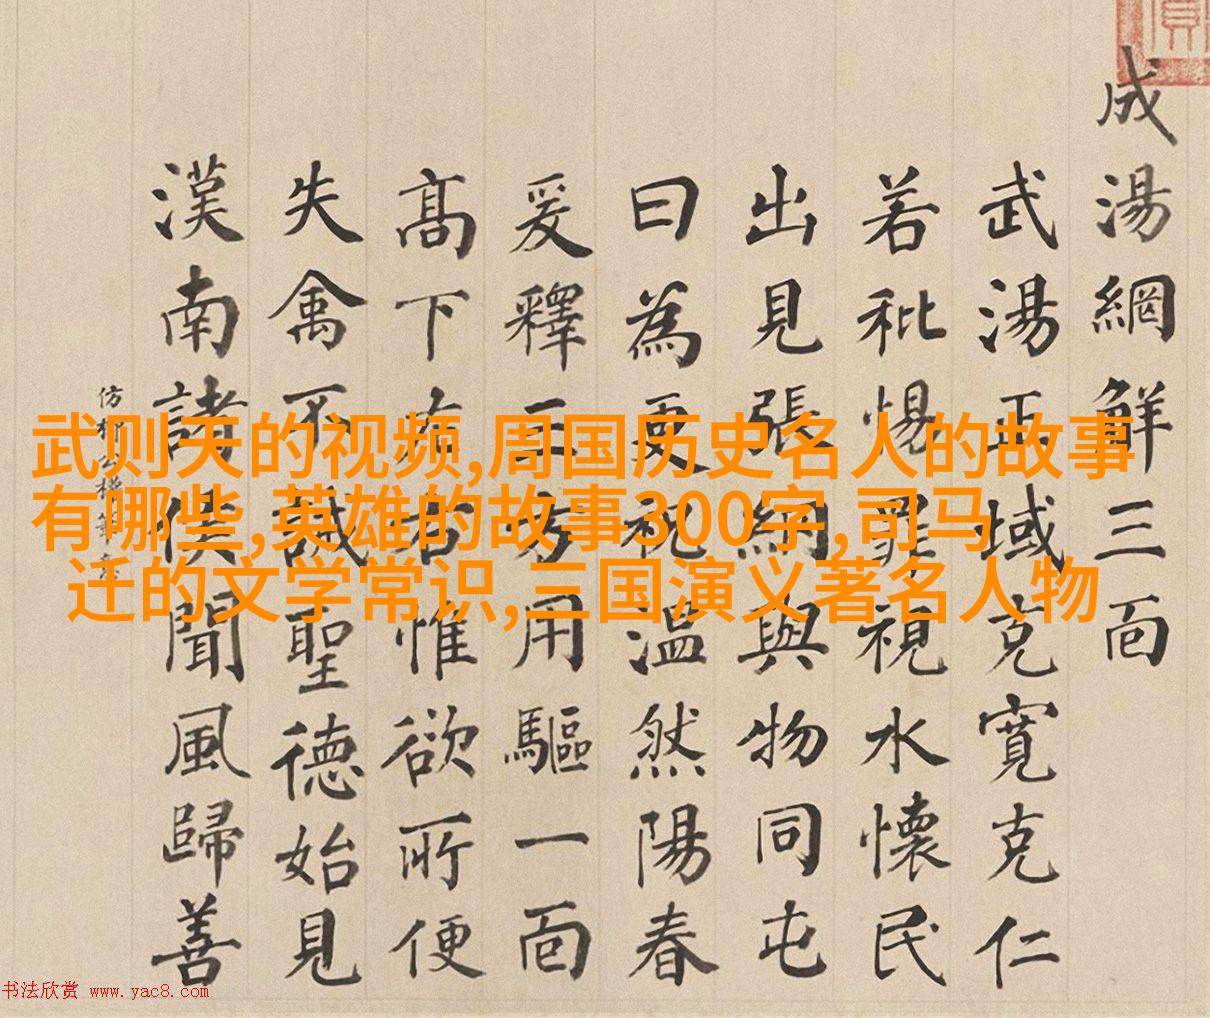 成湯網觧三面
武湯正域克寬克仁
若秕惕罪視水懷民
出見張網與物同屯
曰為更祝溫然陽春
爰釋三方用驅一面
髙下左右惟欲所便
失禽不誡聖德始見
漢南諸侯聞風歸善
仿柳公權筆意
武则天的视频,周国历史名人的故事
有哪些,英雄的故事300字,司马
迁的文学常识,三国演义著名人物
书法欣赏 www.yac8.com